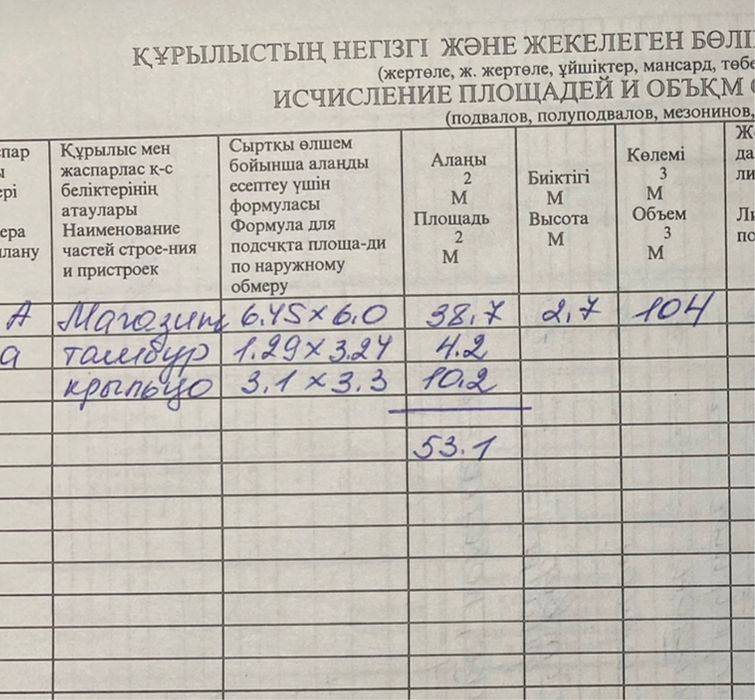 ҚҰРЫЛЫСТЫҢ НЕГІЗГІ ЖӘНЕ ЖЕКЕЛЕГЕН БӨЛІ
(жертөле, ж. жертөле, үйшіктер, мансард, төбе
ИСЧИСЛЕНИЕ ПЛОЩАДЕЙ И ОБЪҚМ
(подвалов, полуподвалов, мезонинов,
Құрылыс мен
жаспарлас қ-с
беліктерінің
атаулары
Наименование
частей строе-ния
и пристроек
Сыртқы өлшем
бойынша алаңды
есептеу үшін
формуласы
Формула для
подсчкта площа-ди
по наружному
обмеру
Алаңы
2
М
Площадь
2
М
Биіктігі
М
Высота
М
Көлемі
3
М
Объем
3
М
А Магазин 6.45×6.0 38,7 2,7 104
а тамбур 1.29×3.24 4.2
крыльцо 3.1×3.3 10.2
53.1